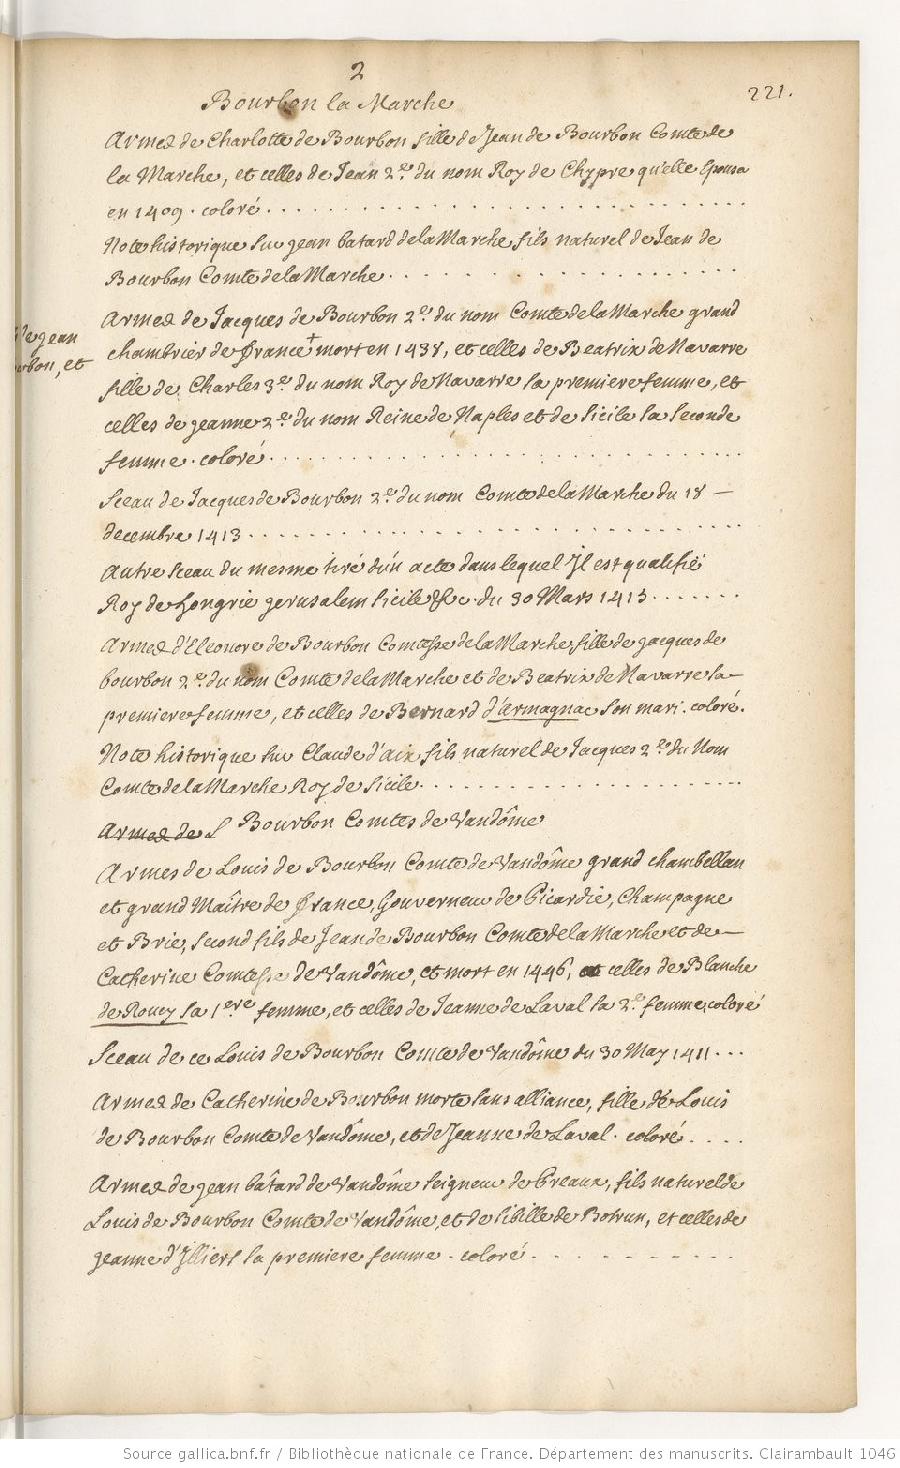 2
221.
Bourbon la Marche
Armes de Charlotte de Bourbon fille de Jean de Bourbon Comte de
la Marche, et celles de Jean 2.e du nom Roy de Chypre qu'elle Epousa
en 1409. coloré . . . . . . . . . . . . . . . . . . . .
Note historique sur jean batard de la Marche fils naturel de Jean de
Bourbon Comte de la Marche . . . . . . . . . . . . . .
Armes de Jacques de Bourbon 2.e du nom Comte de la Marche grand
de jean
bon, et
chambrier de france + mort en 1438, et celles de Beatrix de Navarre
fille de Charles 3.e du nom Roy de Navarre sa premiere femme, et
celles de jeanne 2.e du nom Reine de Naples et de Sicile sa Seconde
femme. coloré . . . . . . . . . . . . . . . . . . . .
Sceau de Jacques de Bourbon 2.e du nom Comte de la Marche du 18 —
decembre 1413 . . . . . . . . . . . . . . . . . . . .
Autre Sceau du mesme tiré d'un acte dans lequel Il est qualifié
Roy de hongrie jerusalem Sicile &c. du 30 Mars 1415 . . . . . . .
Armes d'Eleonore de Bourbon Comtesse de la Marche, fille de jacques de
bourbon 2.e du nom Comte de la Marche et de Beatrix de Navarre sa
premiere femme, et celles de Bernard d'Armagnac son mari. coloré.
Note historique sur Claude d'aix fils naturel de Jacques 2.e du Nom
Comte de la Marche Roy de Sicile . . . . . . . . . . . . . .
Armes de L Bourbon Comtes de Vandôme
Armes de Louis de Bourbon Comte de Vandôme grand chambellan
et grand Maître de france, Gouverneur de Picardie, Champagne
et Brie, Second fils de Jean de Bourbon Comte de la Marche et de —
Catherine Comtesse de Vandôme, et mort en 1446, et celles de Blanche
de Roucy sa 1ere femme, et celles de Jeanne de Laval sa 2.e femme, coloré
Sceau de ce Louis de Bourbon Comte de Vandôme du 30 May 1411 . . .
Armes de Catherine de Bourbon morte sans alliance, fille de Louis
de Bourbon Comte de Vandôme, et de Jeanne de Laval. coloré . . . .
Armes de jean bâtard de Vandôme Seigneur de Preaux, fils naturel de
Louis de Bourbon Comte de Vandôme, et de Sibille de Bostun, et celles de
jeanne d'Illiers sa premiere femme. coloré . . . . . . . . . .
Source gallica.bnf.fr / Bibliothèque nationale de France. Département des manuscrits. Clairambault 1046